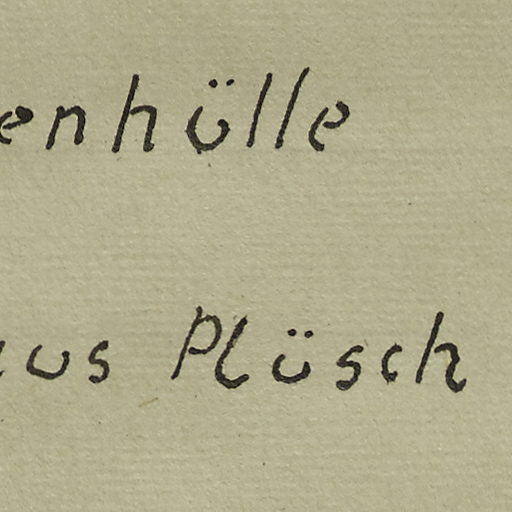 enhülle
aus Plüsch